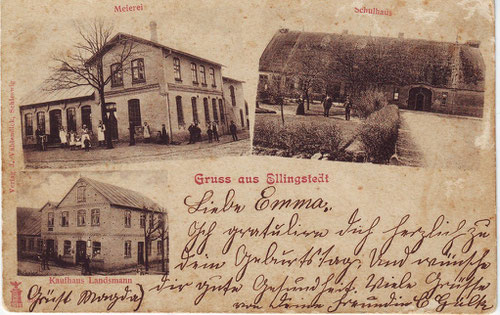 Meierei
Schulhaus
Gruss aus Ellingstedt
Kaufhaus Landsmann
Liebe Emma.
Ich gratuliere dich herzlich zu
dein Geburtstag. Und wünsche
dir gute Gesundheit. Viele Grüße
von Deine Freundin C.
Grüßt Magda